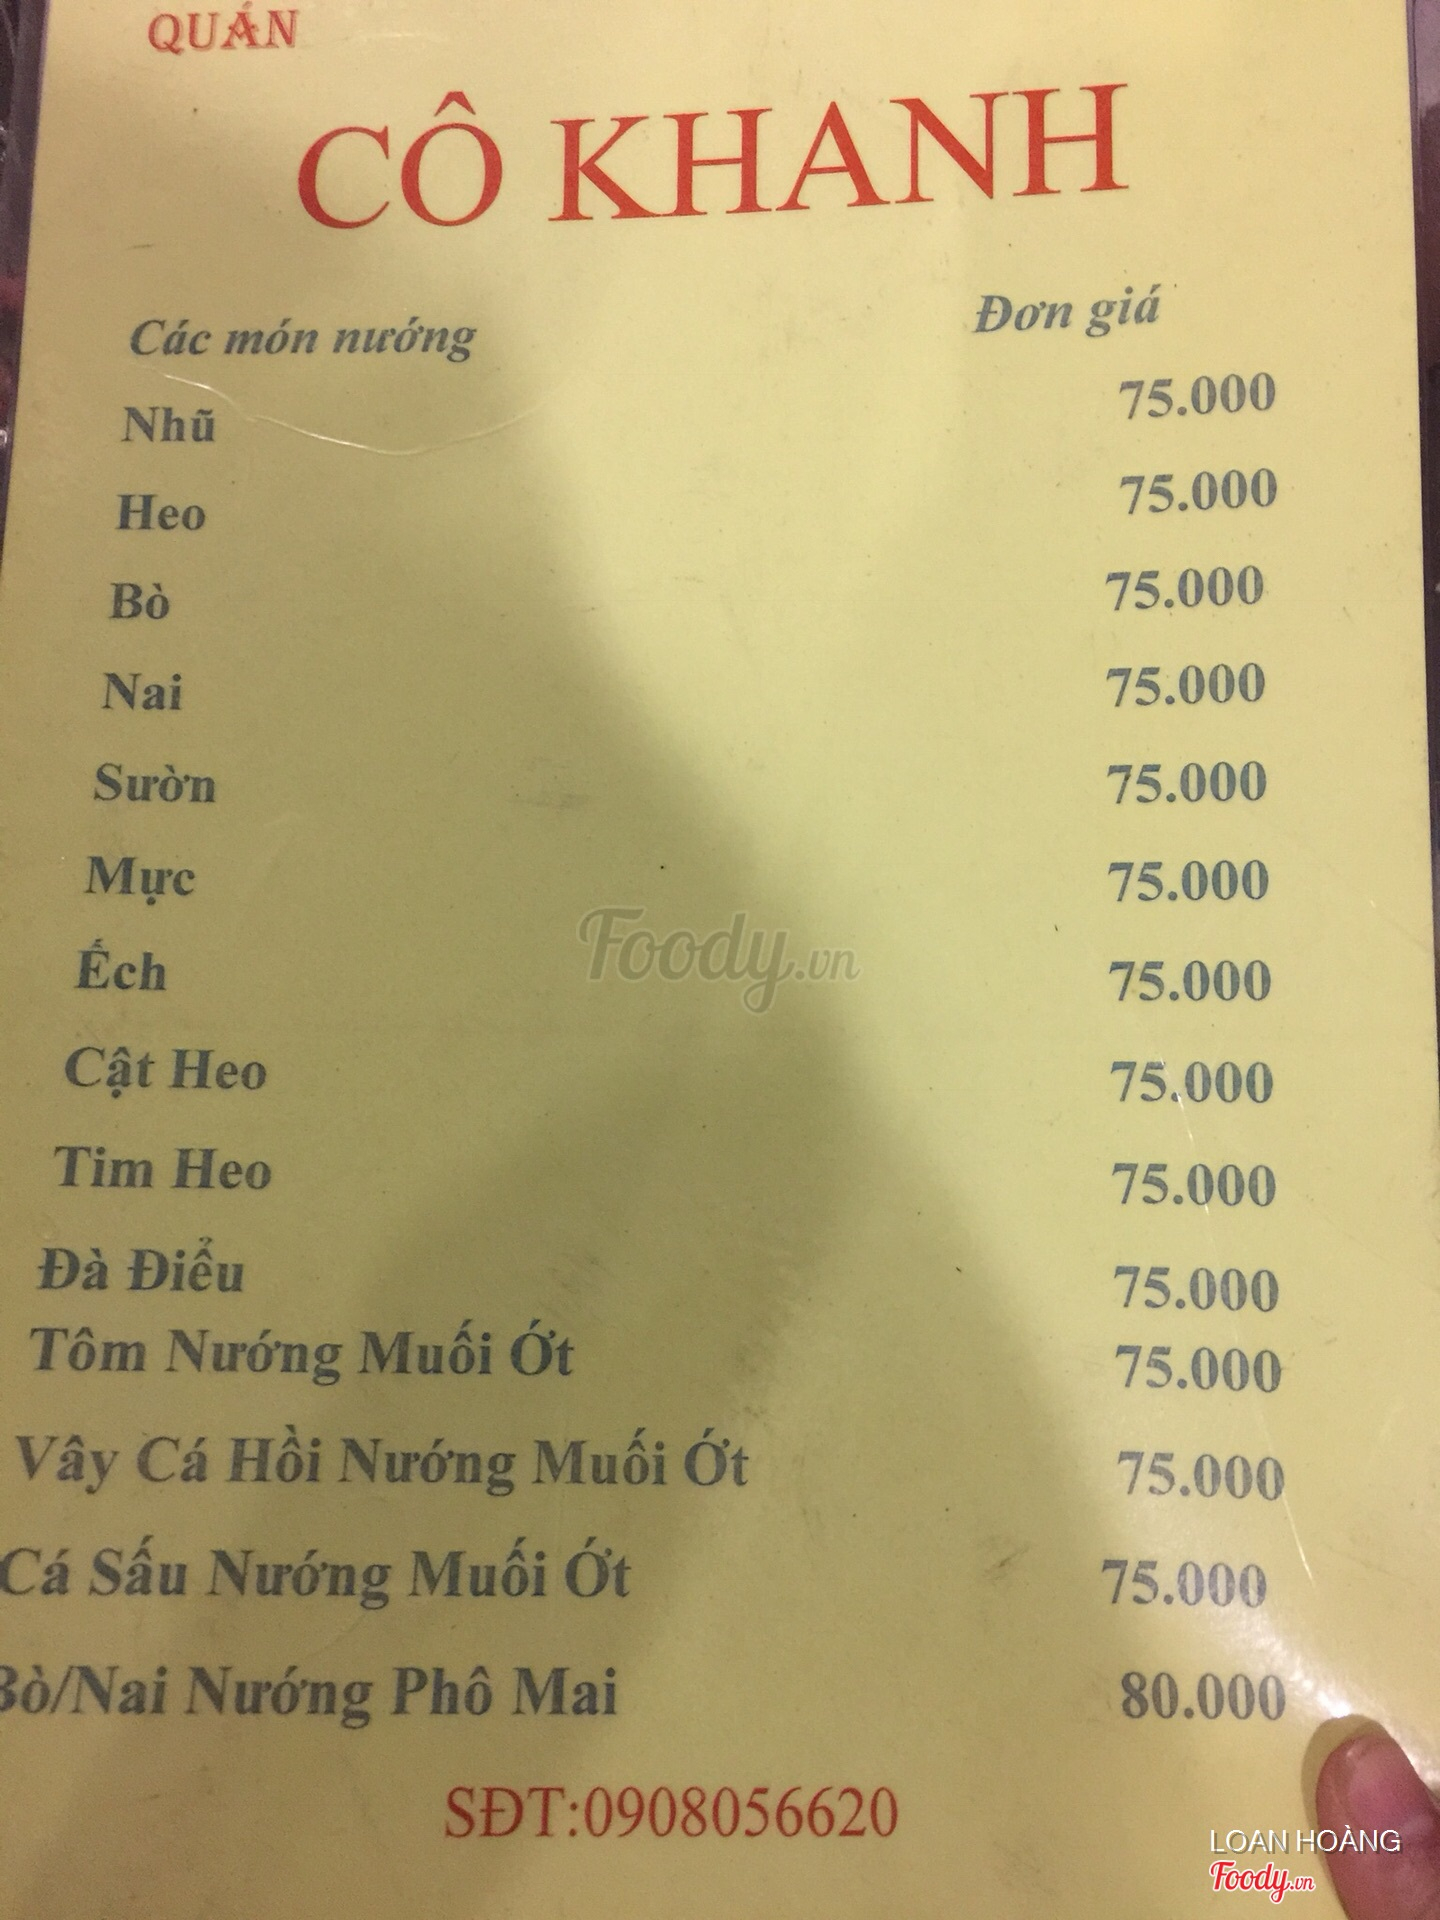 QUÁN
CÔ KHANH
Các món nướng Đơn giá
Nhũ 75.000
Heo 75.000
Bò 75.000
Nai 75.000
Sườn 75.000
Mực 75.000
Ếch 75.000
Cật Heo 75.000
Tim Heo 75.000
Đà Điểu 75.000
Tôm Nướng Muối Ớt 75.000
Vây Cá Hồi Nướng Muối Ớt 75.000
Cá Sấu Nướng Muối Ớt 75.000
Bò/Nai Nướng Phô Mai 80.000
SĐT:0908056620
Foody.vn
LOAN HOÀNG
Foody.vn